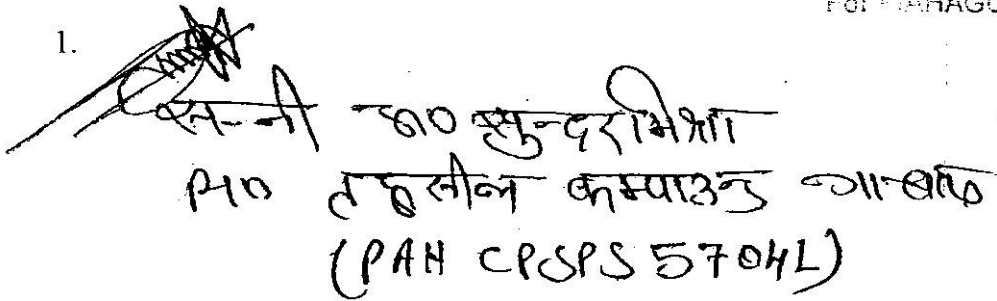 For MAHAGU
1.
सन्नी S/O सुन्दर मिश्रा
नि० तहसील कम्पाउन्ड गा०बाद
(PAN CPSPS 5704L)